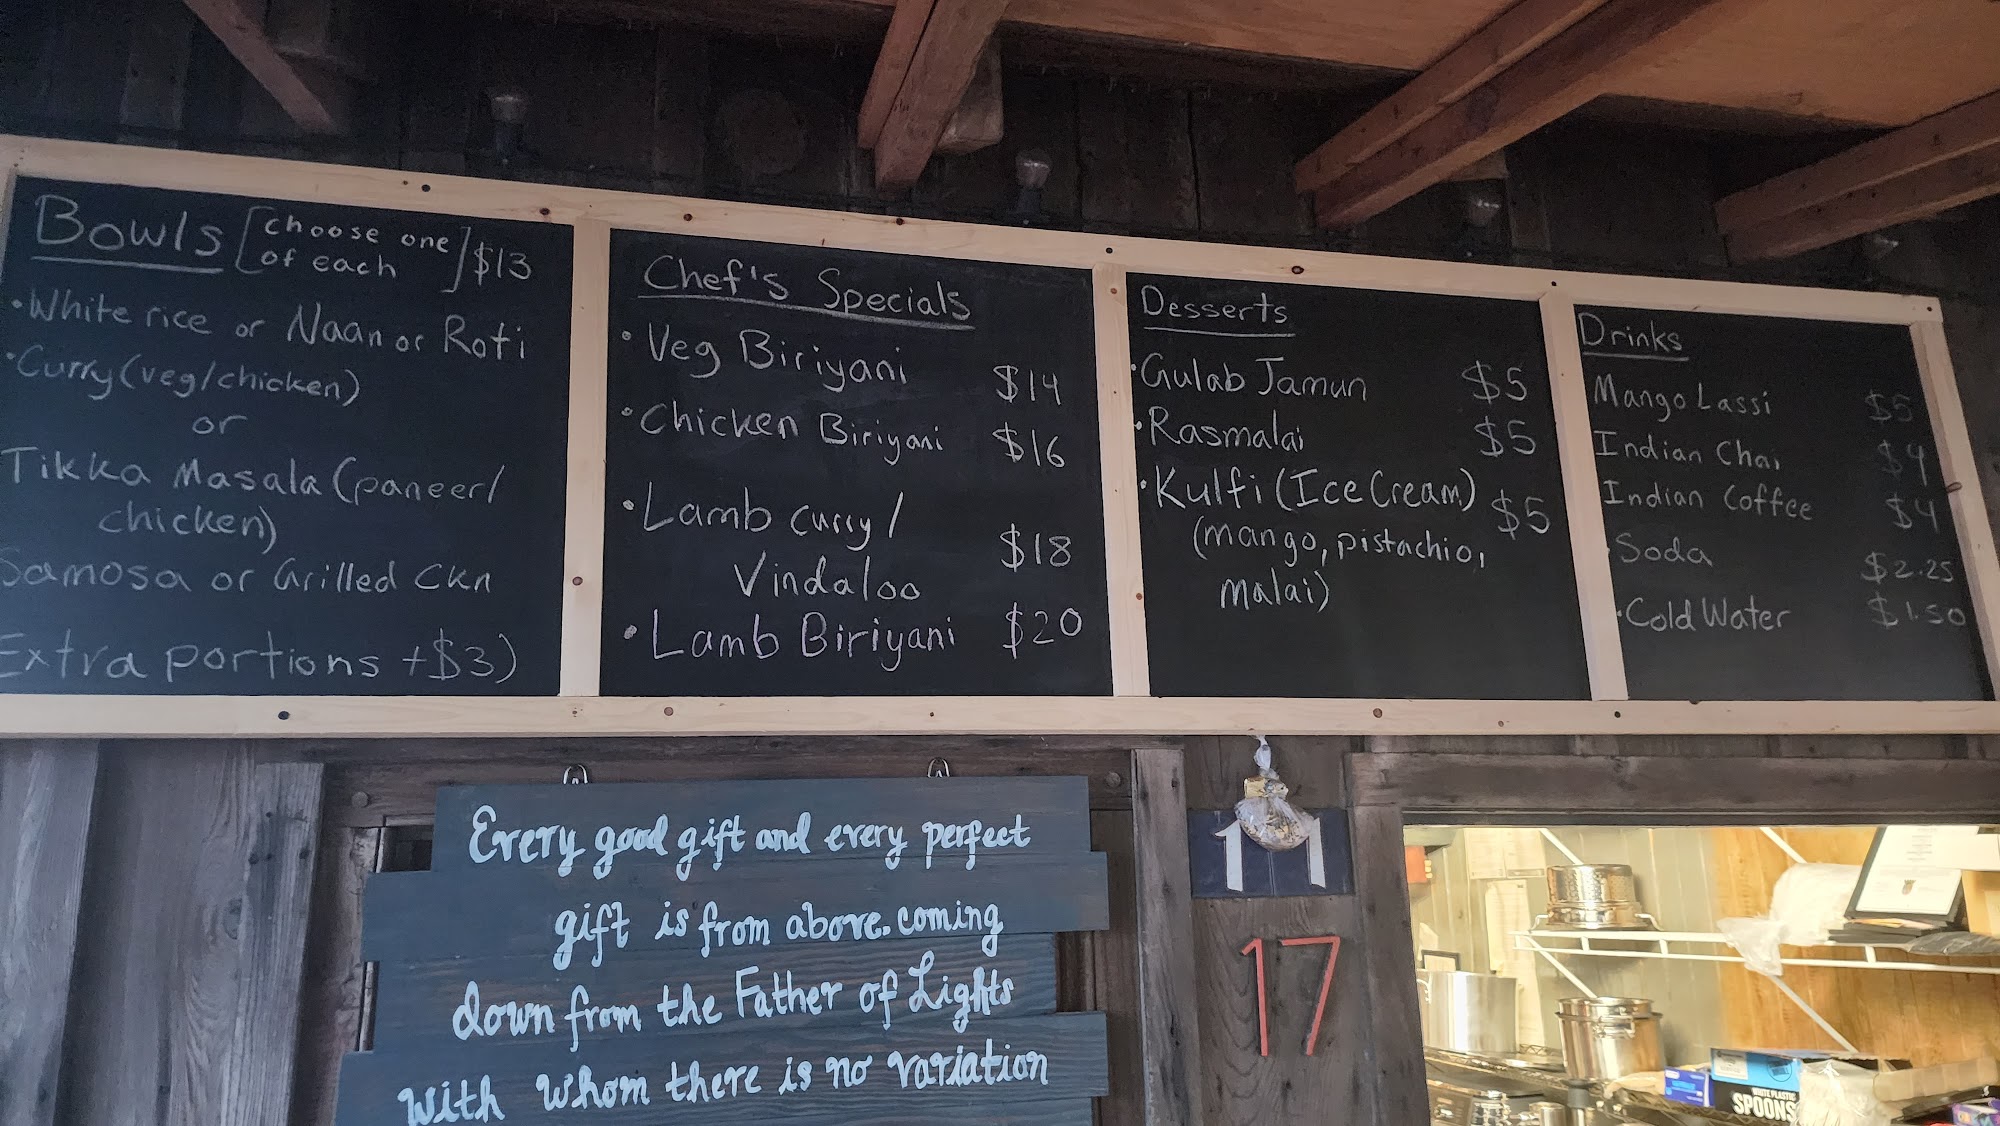 Bowls [choose one of each] $13
• White rice or Naan or Roti
• Curry (veg/chicken)
or
Tikka Masala (paneer/
chicken)
Samosa or Grilled Ckn
Extra portions +$3)
Chef's Specials
• Veg Biriyani $14
• Chicken Biriyani $16
• Lamb curry/
Vindaloo $18
• Lamb Biriyani $20
Desserts
• Gulab Jamun $5
• Rasmalai $5
• Kulfi (Ice Cream) $5
(mango, pistachio,
malai)
Drinks
Mango Lassi $5
Indian Chai $4
Indian Coffee $4
• Soda $2.25
• Cold Water $1.50
Every good gift and every perfect
gift is from above. coming
down from the Father of Lights
with whom there is no variation
17
SPOONS